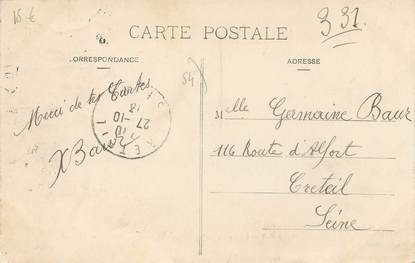 15 €
331
CARTE POSTALE
CORRESPONDANCE
ADRESSE
54
Merci de tes Cartes.
X Baur
18
27 -10
10
Melle Germaine Baur
116 Route d'Alfort
Creteil
Seine